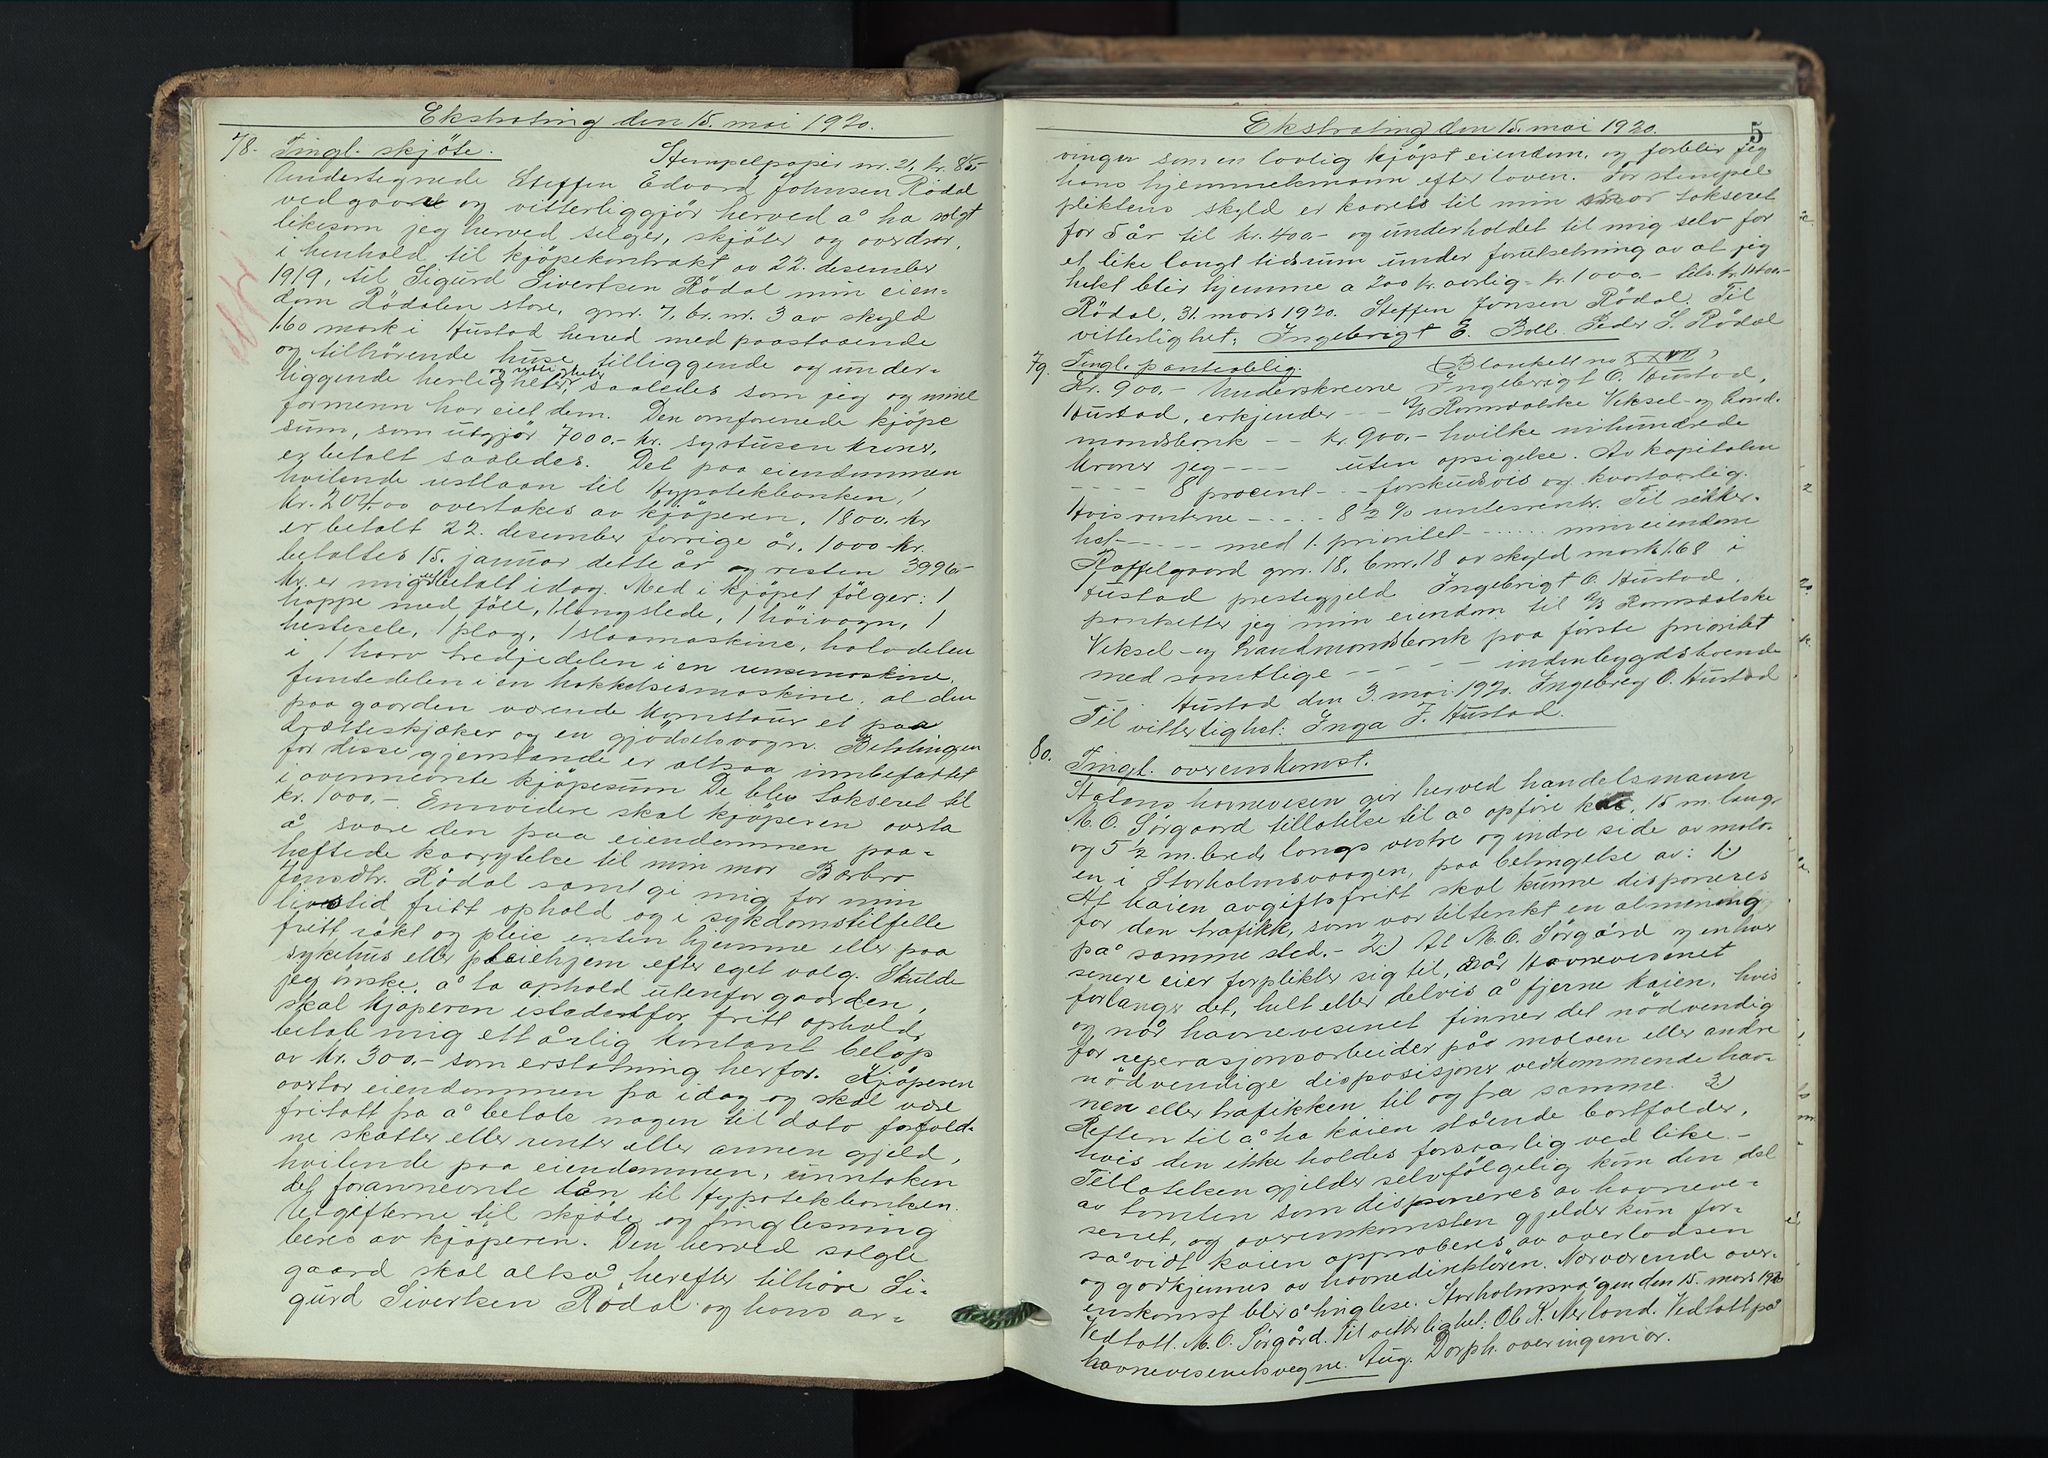 Ekstrating den 15. mai 1920.
78. Tingl. skjöte.
Stempelpapir nr. 21, kr. 85.-
Undertegnede Steffen Edvard Johnsen Rödal
vedgaar og vitterliggjör herved å ha solgt
likesom jeg herved selger, skjöter og overdrar,
i henhold til kjöpekontrakt av 22. desember
1919, til Sigurd Sivertsen Rödal min eien-
dom Rödalen store, gnr. 7, br. nr. 3 av skyld
1.60 mark i Hustad herred med paastaaende
og tilhörende huse, tilliggende og under-
liggende herligheter og rettigheter, saaledes som jeg og mine
formenn har eiet dem. Den omforenede kjöpe
sum, som utgjör 7000.- kr. sytusen kroner,
er betalt saaledes. Det paa eiendommen
hvilende restlaan til Hypotekbanken,
kr. 204.00 overtakes av kjöperen, 1800.- kr
er betalt 22. desember forrige år, 1000.- kr.
betaltes 15. januar dette år og resten 3996.-
kr. er mig betalt idag. Med i kjöpet fölger: 1
hoppe med föll, 1 langslede, 1 höivogn, 1
hestesele, 1 plog, 1 slaamaskine, halvdelen
i 1 harv tredjedelen i en rensemaskine,
femtedelen i en hakkelsesmaskine, al den
paa gaarden værende kornstaur et par
drætteskjæker og en gjödselsvogn. Betalingen
for disse gjenstande er altsaa innbefattet
i ovennevnte kjöpesum De blev takseret til
kr. 1000.-. Ennvidere skal kjöperen overta
å svare den paa eiendommen paa-
heftede kaarytelse til min mor Barbro
Jonsdtr. Rödal samt gi mig for min
livstid fritt ophold og i sykdomstilfelle
fritt røkt og pleie enten hjemme eller paa
sykehus eller pleiehjem efter eget valg. Skulde
jeg önske, å ta ophold utenfor gaarden,
skal kjöperen istedenfor fritt ophold
betale mig ett årlig kontant belöp
av kr. 300.- som erstatning herfor. Kjöperen
overtar eiendommen fra idag og skal være
fritatt fra å betale nogen til dato forfald-
ne skatter eller renter eller annen gjeld,
hvilende paa eiendommen, unntaken
det forannevnte lån til Hypotekbanken.
Utgifterne til skjöte og tinglesning
beres av kjöperen. Den herved solgte
gaard skal altså herefter tilhöre Si-
gurd Sivertsen Rödal og hans ar-
Ekstrating den 15. mai 1920.
5
vinger som en lovlig kjöpt eiendom, og forblir jeg
hans hjemmelsmann efter loven. For stempel
pliktens skyld er kaaret til min mor takseret
for 5 år til kr. 400.- og underholdet til mig selv for
et like langt tidsrum under forutsetning av at jeg
helst blir hjemme a 200 kr. aarlig = kr. 1000.- tils. kr. 1400.-
Rödal, 31. mars 1920. Steffen Jonsen Rödal. Til
vitterlighet: Ingebrigt E. Boll. Peder S. Rödal
79. Tingl. panteoblig. (Blankett no XXVII)
Kr. 900.- Underskrevne Ingebrigt O. Hustad,
Hustad, erkjender - - - A/S Romsdalske Veksel- og Land-
mandsbank - - kr. 900.- hvilke nihundrede
kroner jeg - - - - uten opsigelse. Av kapitalen
- - - - - 8 procent - - - forskudsvis og kvartaarlig.
Hvis renterne - - - - - 8 1/2 % rentesrentr. Til sikker-
het - - - - - med 1. prioritet - - - - - min eiendom
Kaffelgaard gnr. 18, bnr. 18 av skyld mark 1.68 i
Hustad prestegjeld Ingebrigt O. Hustad.
pantsetter jeg min eiendom til A/S Romsdalske
Veksel- og Landmandsbank paa første prioritet
med samtlige - - - - - indenbygdsboende
Hustad den 3. mai 1920. Ingebrig O. Hustad
Til vitterlighet: Inga J. Hustad.
80. Tingl. overenskomst.
Statens havnevesen gir herved handelsmann
M. O. Sörgaard tillatelse til å opföre kai, 15 m. lang
og 5 1/2 m. bred langs vestre og indre side av molo-
en i Storholmsvaagen, paa betingelse av: 1)
At kaien avgiftsfritt skal kunne disponeres
for den trafikk, som var tiltenkt en almenning
på samme sted. - 2) At M. O. Sörgård og enhver
senere eier forplikter sig til, når Havnevesenet
forlanger det, helt eller delvis å fjerne kaien, hvis
og når havnevesenet finner det nödvendig
for reperasjonsarbeider på moloen eller andre
nödvendige disposisjoner vedkommende hav-
nen eller trafikken til og fra samme. 3)
Retten til å ha kaien stående bortfalder,
hvis den ikke holdes forsvarlig ved like. -
Tillatelsen gjelder selvfölgelig kun den del
av tomten som disponeres av havneve-
senet, og overenskomsten gjelder kun for-
såvidt kaien approberes av overlodsen
og godkjennes av havnedirektören. Nærværende over-
enskomst blir å tinglese. Storholmsvågen den 15. mars 1920
Vedtatt. M. O. Sörgård. Til vitterlighet: Ole K. Nerland. Vedtatt på
havnevesenets vegne. Aug. Dorph. overingeniör.